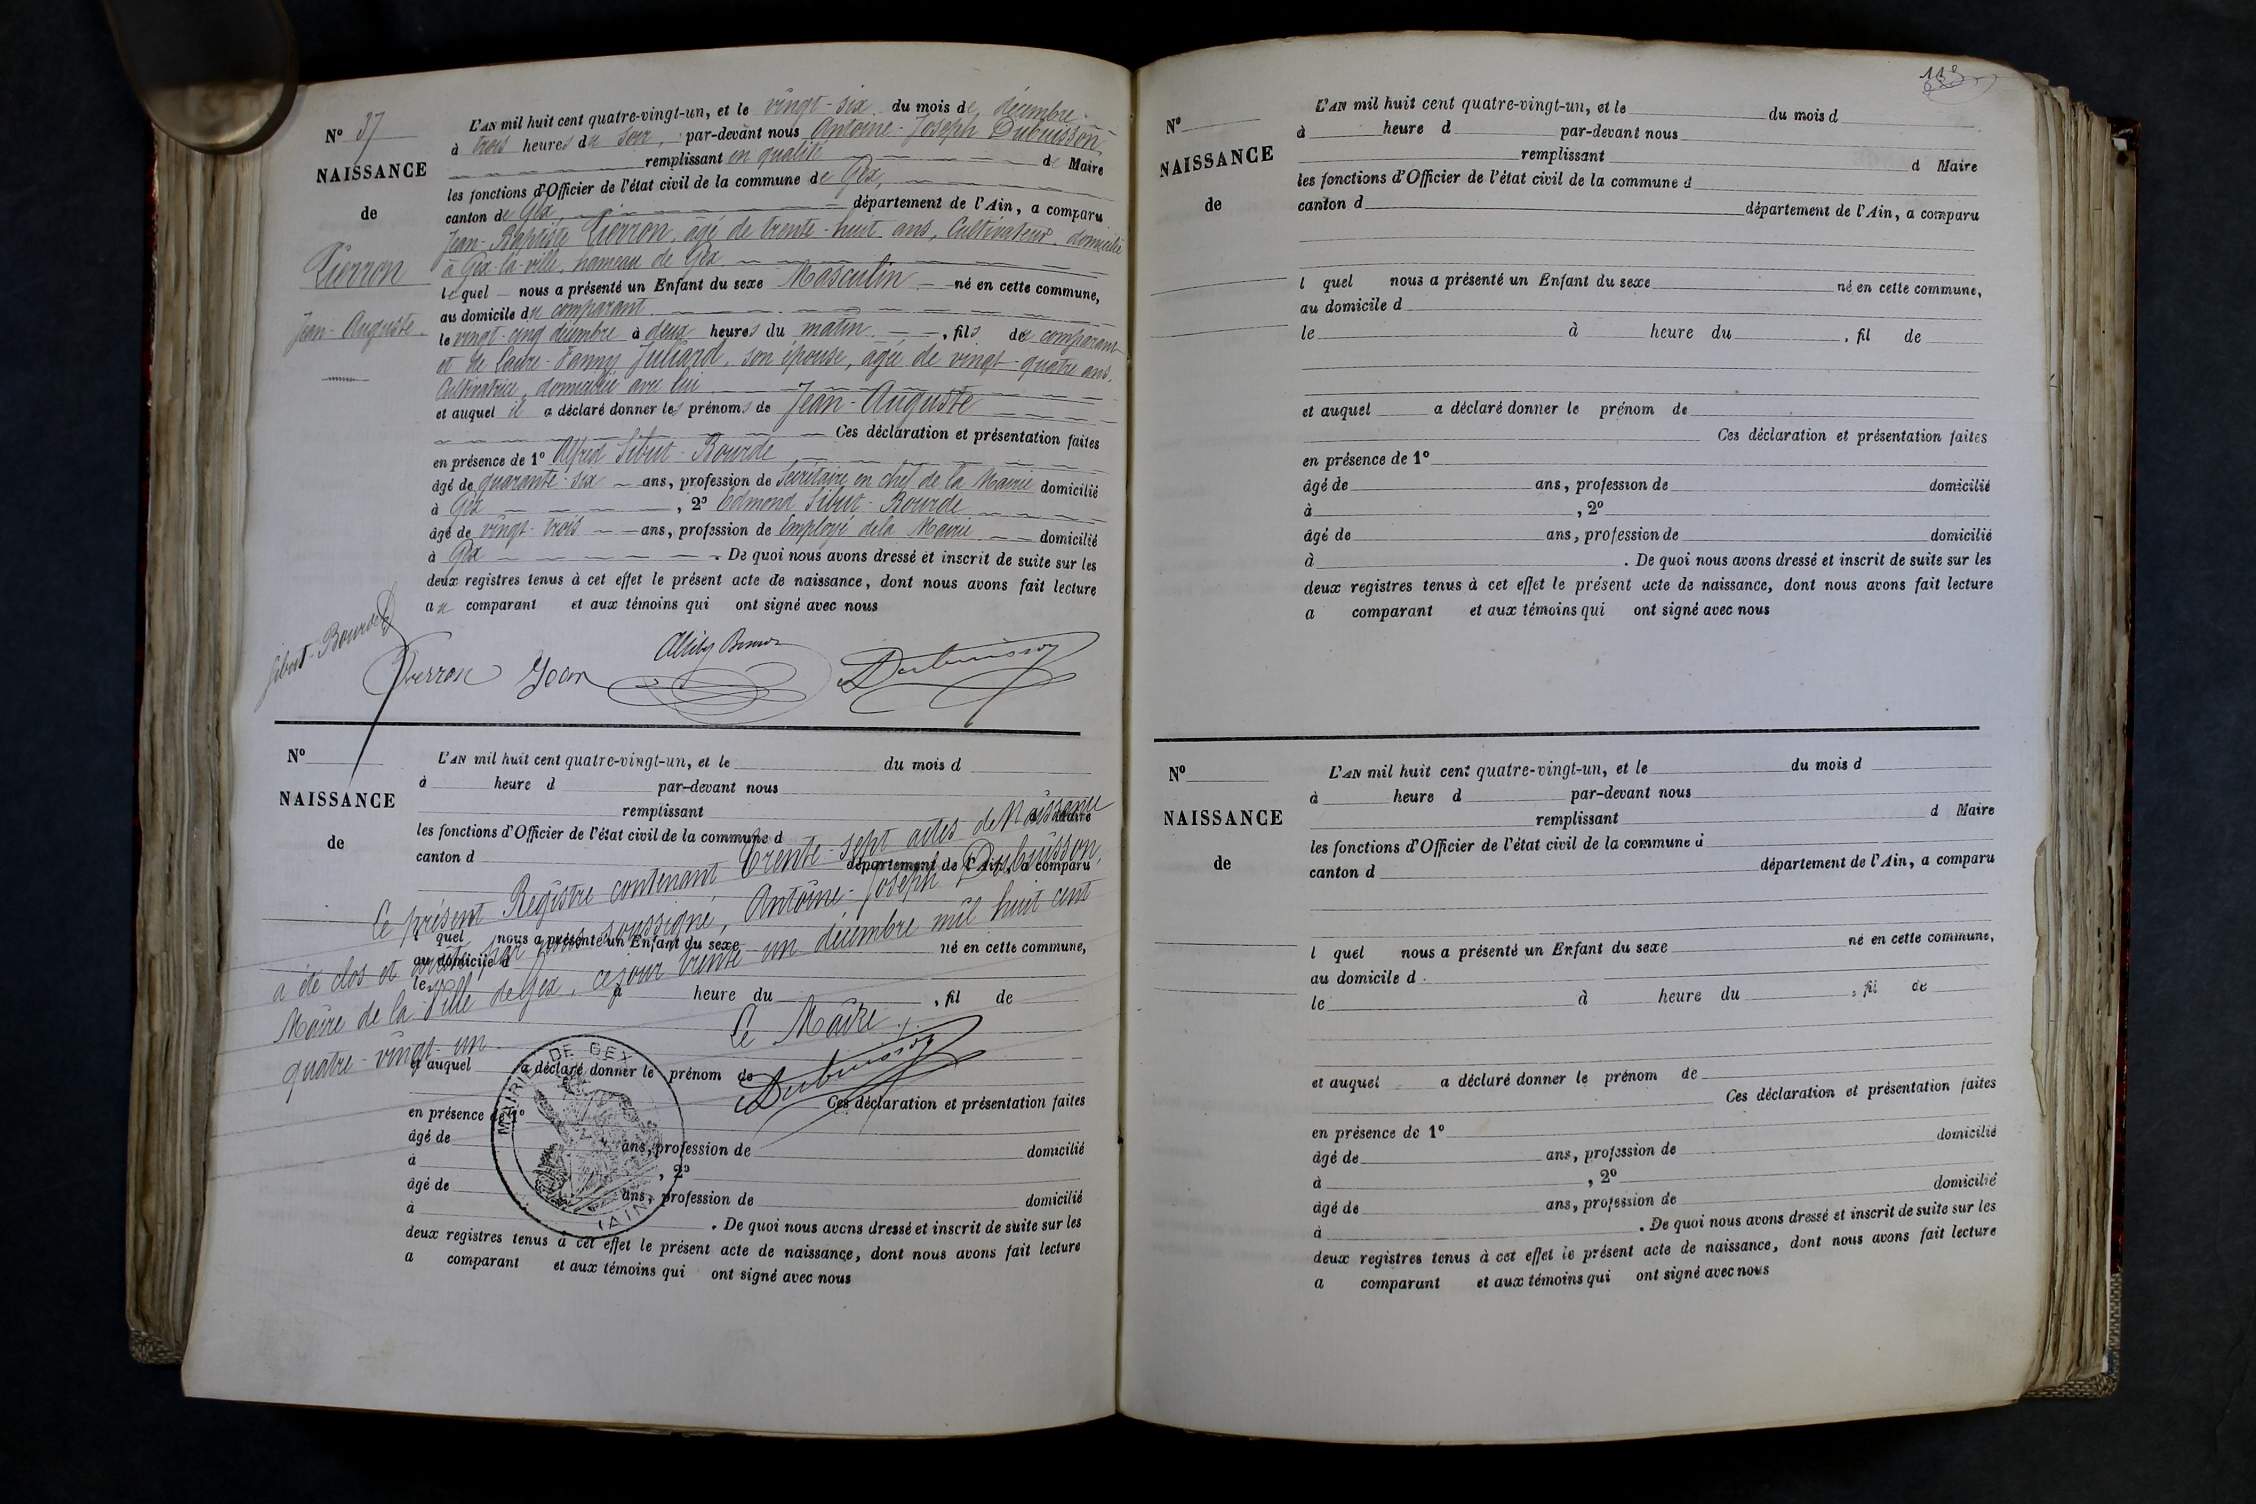 N° 37
NAISSANCE
de
Pierron
Jean-Auguste
L'AN mil huit cent quatre-vingt-un, et le vingt-six du mois de décembre
à trois heures du soir, par-devant nous Antoine-Joseph Dubuisson,
remplissant en qualité de Maire
les fonctions d'Officier de l'état civil de la commune de Gex,
canton de Gex, département de l'Ain, a comparu
Jean-Baptiste Pierron, agé de trente-huit ans, Cultivateur, domicilié
à Gex-la-ville, hameau de Gex
lequel nous a présenté un Enfant du sexe Masculin né en cette commune,
au domicile du comparant
le vingt-cinq décembre à deux heures du matin, fils de comparant
et de Laure-Fanny Juliard, son épouse, agée de vingt-quatre ans,
Cultivatrice, domiciliée avec lui
et auquel il a déclaré donner les prénoms de Jean-Auguste
Ces déclaration et présentation faites
en présence de 1° Alfred Sibut-Bourde
âgé de quarante-six ans, profession de Secrétaire en chef de la Mairie domicilié
à Gex, 2° Edmond Sibut-Bourde
âgé de vingt-trois ans, profession de Employé de la Mairie domicilié
à Gex. De quoi nous avons dressé et inscrit de suite sur les
deux registres tenus à cet effet le présent acte de naissance, dont nous avons fait lecture
au comparant et aux témoins qui ont signé avec nous
Sibut-Bourde
Pierron Jean
Dubuisson
N°
NAISSANCE
de
L'AN mil huit cent quatre-vingt-un, et le du mois d
à heure d par-devant nous
remplissant d Maire
les fonctions d'Officier de l'état civil de la commune d
canton d département de l'Ain, a comparu
l quel nous a présenté un Enfant du sexe né en cette commune,
au domicile d
le à heure du , fil de
et auquel a déclaré donner le prénom de
Ces déclaration et présentation faites
en présence de 1°
âgé de ans, profession de domicilié
à , 2°
âgé de ans, profession de domicilié
à . De quoi nous avons dressé et inscrit de suite sur les
deux registres tenus à cet effet le présent acte de naissance, dont nous avons fait lecture
a comparant et aux témoins qui ont signé avec nous
Le présent Registre contenant trente-sept actes de Naissance
a été clos et arrêté par nous soussigné, Antoine-Joseph Dubuisson,
Maire de la Ville de Gex, ce jour trente-un décembre mil huit cent
quatre-vingt-un.
Le Maire,
Dubuisson
MAIRIE DE GEX
(AIN)
N°
NAISSANCE
de
L'AN mil huit cent quatre-vingt-un, et le du mois d
à heure d par-devant nous
remplissant d Maire
les fonctions d'Officier de l'état civil de la commune d
canton d département de l'Ain, a comparu
l quel nous a présenté un Enfant du sexe né en cette commune,
au domicile d
le à heure du , fil de
et auquel a déclaré donner le prénom de
Ces déclaration et présentation faites
en présence de 1°
âgé de ans, profession de domicilié
à , 2°
âgé de ans, profession de domicilié
à . De quoi nous avons dressé et inscrit de suite sur les
deux registres tenus à cet effet le présent acte de naissance, dont nous avons fait lecture
a comparant et aux témoins qui ont signé avec nous
N°
NAISSANCE
de
L'AN mil huit cent quatre-vingt-un, et le du mois d
à heure d par-devant nous
remplissant d Maire
les fonctions d'Officier de l'état civil de la commune d
canton d département de l'Ain, a comparu
l quel nous a présenté un Enfant du sexe né en cette commune,
au domicile d
le à heure du , fil de
et auquel a déclaré donner le prénom de
Ces déclaration et présentation faites
en présence de 1°
âgé de ans, profession de domicilié
à , 2°
âgé de ans, profession de domicilié
à . De quoi nous avons dressé et inscrit de suite sur les
deux registres tenus à cet effet le présent acte de naissance, dont nous avons fait lecture
a comparant et aux témoins qui ont signé avec nous